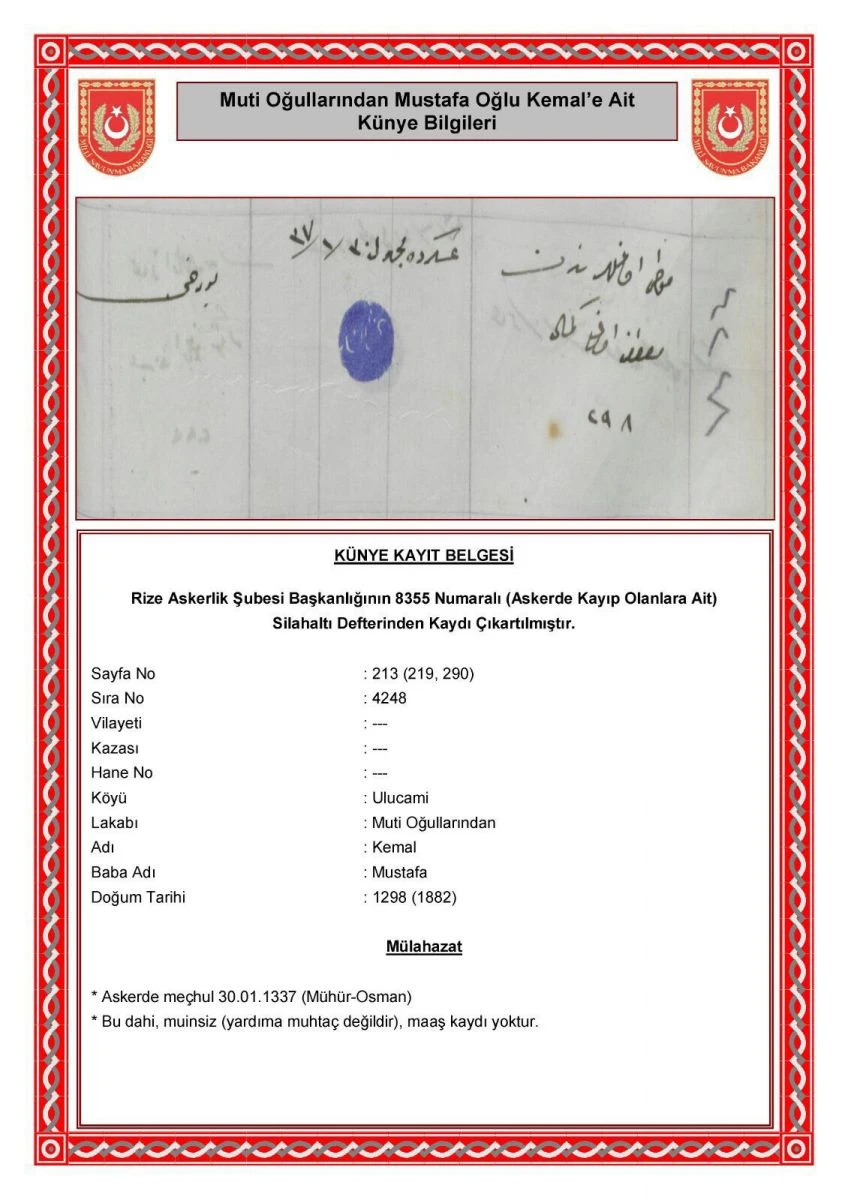 Muti Oğullarından Mustafa Oğlu Kemal’e Ait
Künye Bilgileri
MİLLİ SAVUNMA BAKANLIĞI
MİLLİ SAVUNMA BAKANLIĞI
عسكرده مجهول ٣٠/١/٣٧
اوغللرندن
مصطفى اوغلى كمال
٢٩٨
KÜNYE KAYIT BELGESİ
Rize Askerlik Şubesi Başkanlığının 8355 Numaralı (Askerde Kayıp Olanlara Ait)
Silahaltı Defterinden Kaydı Çıkartılmıştır.
Sayfa No : 213 (219, 290)
Sıra No : 4248
Vilayeti : ---
Kazası : ---
Hane No : ---
Köyü : Ulucami
Lakabı : Muti Oğullarından
Adı : Kemal
Baba Adı : Mustafa
Doğum Tarihi : 1298 (1882)
Mülahazat
* Askerde meçhul 30.01.1337 (Mühür-Osman)
* Bu dahi, muinsiz (yardıma muhtaç değildir), maaş kaydı yoktur.